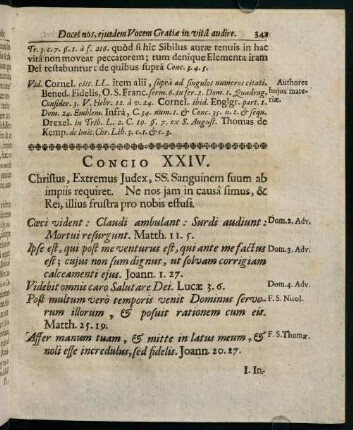 Docet nos, ejusdem Vocem Gratiæ in vitâ audire. 341
Tr. 3. c. 7. §. 1. à f. 216. quòd si hic Sibilus auræ tenuis in hac
vitâ non moveat peccatorem; tum denique Elementa iram
Dei testabuntur: de quibus suprà Conc. 3. 4. 5.
Vid. Cornel. citt. LL. item alii, suprà ad singulos numeros citati. Authores
Bened. Fidelis, O. S. Franc. serm. 6. infer. 2. Dom. 1. Quadrag. hujus mate-
Consider. 3. V. Hebr. 12. à v. 24. Cornel. ibid. Englgr. part. 1. riæ.
Dom. 24. Emblem. Infrà, C. 34. num. 1. & Conc. 35. n. 2. & sequ.
Drexel. in Trib. L. 2. C. 19. §. 7. ex S. August. Thomas de
Kemp. de Imit. Chr. Lib. 3. c. 1. & c. 3.
CONCIO XXIV.
Christus, Extremus Judex, SS. Sanguinem suum ab
impiis requiret. Ne nos jam in causâ simus, &
Rei, illius frustra pro nobis effusi.
Cæci vident: Claudi ambulant: Surdi audiunt: Dom. 2. Adv.
Mortui resurgunt. Matth. 11. 5.
Ipse est, qui post me venturus est, qui ante me factus Dom. 3. Adv.
est; cujus non sum dignus, ut solvam corrigiam
calceamenti ejus. Joann. 1. 27.
Videbit omnis caro Salutare Dei. Lucæ 3. 6. Dom. 4. Adv.
Post multum verò temporis venit Dominus servo- F. S. Nicol.
rum illorum, & posuit rationem cum eis.
Matth. 25. 19.
Affer manum tuam, & mitte in latus meum, & F. S. Thomæ.
noli esse incredulus, sed fidelis. Joann. 20. 27.
I. In-